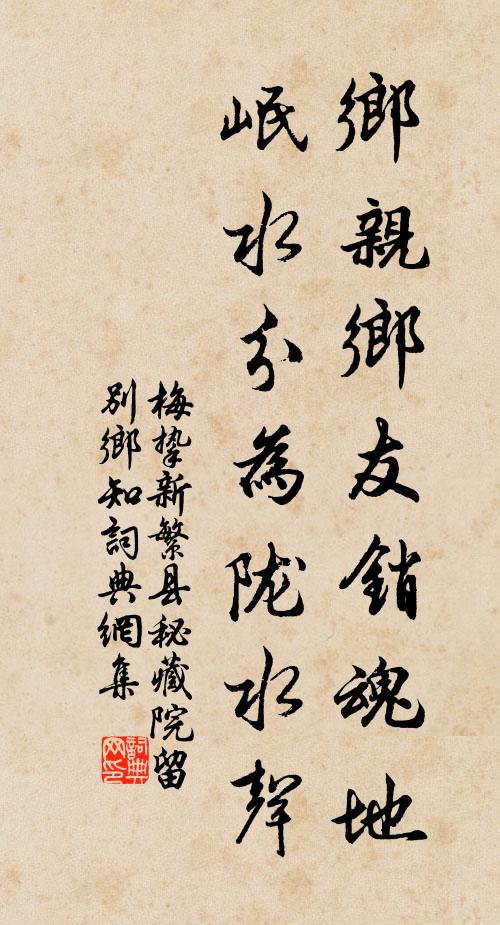 鄉親鄉友銷魂地
岷水分為陇水聲
梅挚新繁县秘藏院留
別鄉知詞典網集
詞典网印